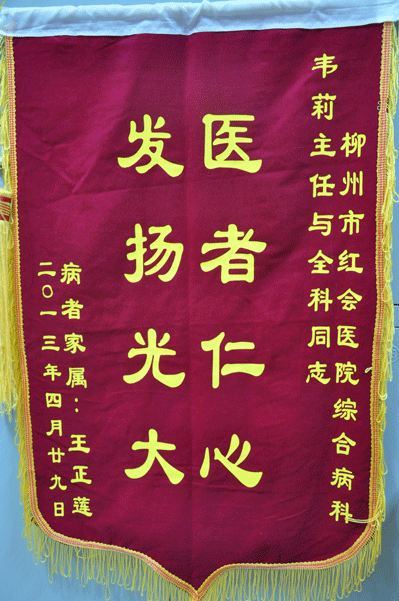 柳州市红会医院综合病科
韦莉主任与全科同志
医者仁心
发扬光大
病者家属：王正莲
二〇一三年四月廿九日